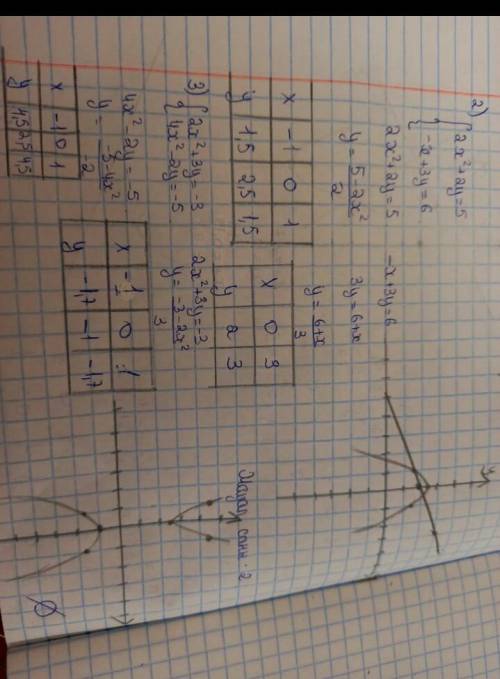 2) { 2x²+2y=5
{ -x+3y=6
2x²+2y=5
y = (5-2x²)/2
x | -1 | 0 | 1
y | 1,5 | 2,5 | 1,5
-x+3y=6
3y=6+x
y = (6+x)/3
x | 0 | 3
y | 2 | 3
санч - 2
3) { 2x²+3y=-3
{ 4x²-2y=-5
4x²-2y=-5
y = (-5-4x²)/-2
x | -1 | 0 | 1
y | 4,5 | 2,5 | 4,5
2x²+3y=-3
y = (-3-2x²)/3
x | -1 | 0 | 1
y | -1,7 | -1 | -1,7
∅